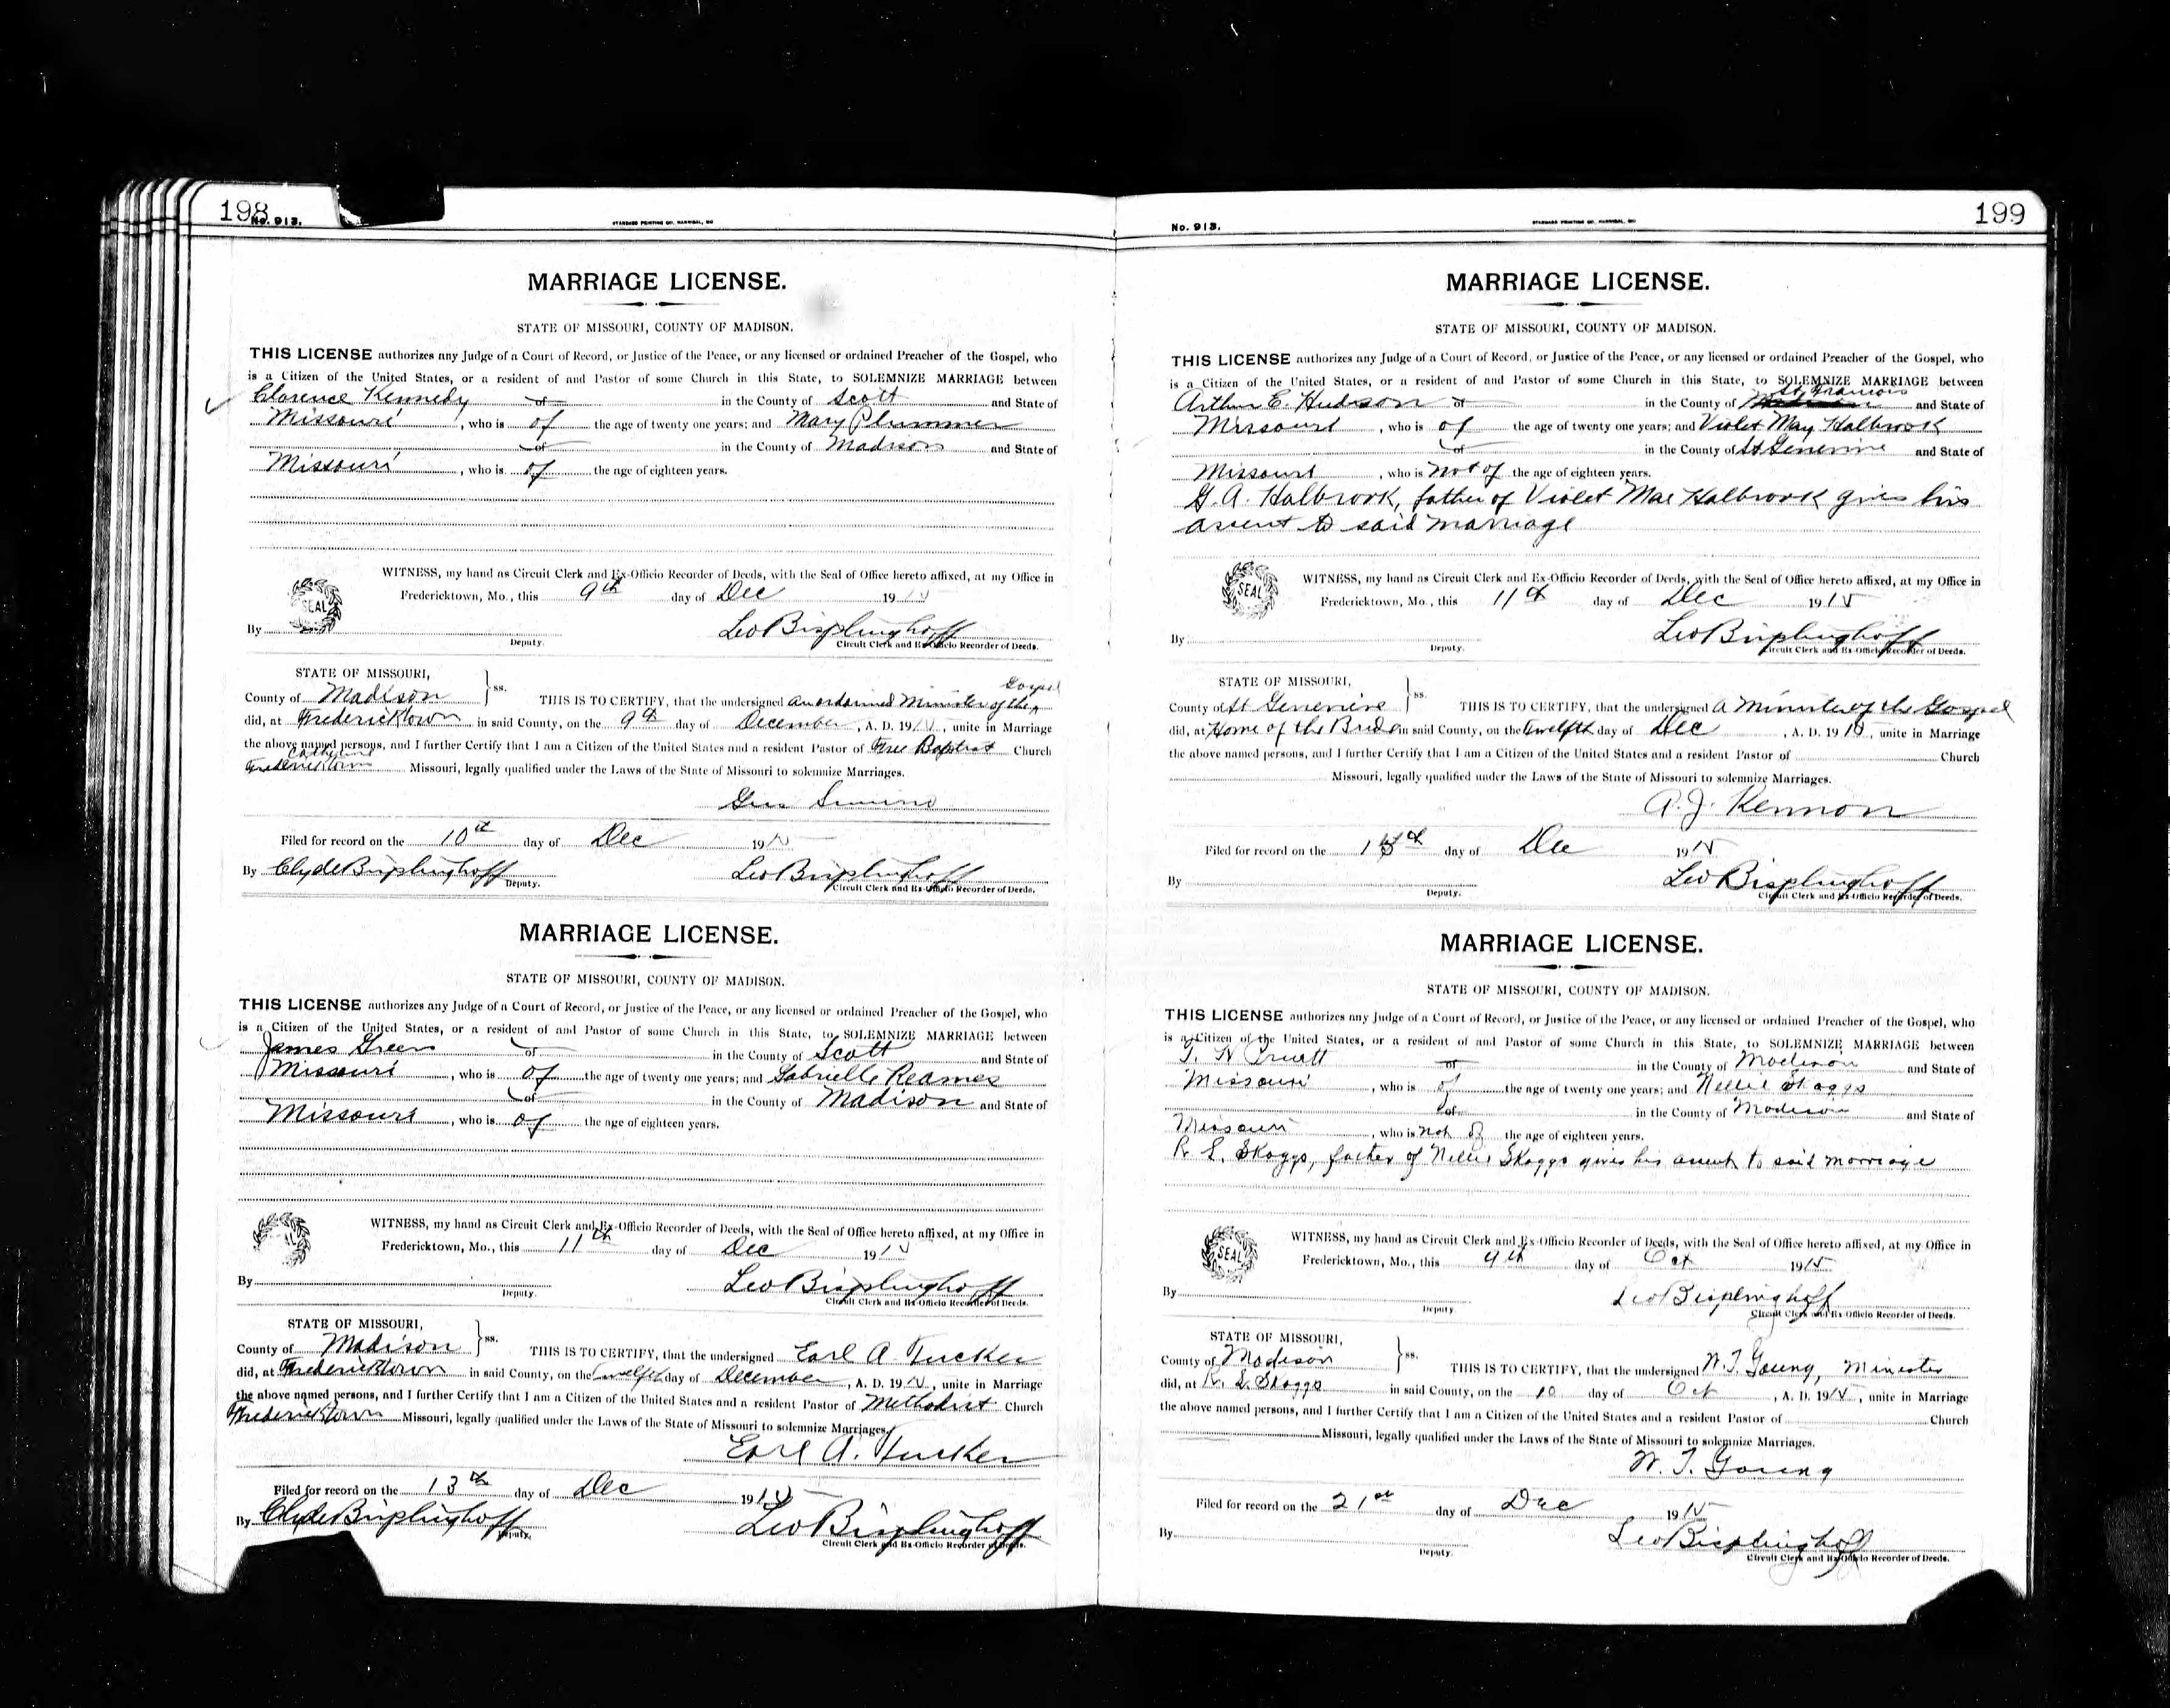 198
No. 913.
STANDARD PRINTING CO. HANNIBAL, MO
MARRIAGE LICENSE.
STATE OF MISSOURI, COUNTY OF MADISON.
THIS LICENSE authorizes any Judge of a Court of Record, or Justice of the Peace, or any licensed or ordained Preacher of the Gospel, who
is a Citizen of the United States, or a resident of and Pastor of some Church in this State, to SOLEMNIZE MARRIAGE between
Clarence Kennedy of in the County of Scott and State of
Missouri, who is of the age of twenty one years; and Mary Plummer
of in the County of Madison and State of
Missouri, who is of the age of eighteen years.
WITNESS, my hand as Circuit Clerk and Ex-Officio Recorder of Deeds, with the Seal of Office hereto affixed, at my Office in
SEAL
Fredericktown, Mo., this 9th day of Dec 1915
By Leo Bisplinghoff
Deputy. Circuit Clerk and Ex-Officio Recorder of Deeds.
STATE OF MISSOURI,
County of Madison } ss. THIS IS TO CERTIFY, that the undersigned an ordained Minister of the Gospel
did, at Fredericktown in said County, on the 9th day of December, A. D. 1915, unite in Marriage
the above named persons, and I further Certify that I am a Citizen of the United States and a resident Pastor of Free Baptist Church
Fredericktown Missouri, legally qualified under the Laws of the State of Missouri to solemnize Marriages.
Filed for record on the 10th day of Dec 1915
By Clyde Bisplinghoff Leo Bisplinghoff
Deputy. Circuit Clerk and Ex-Officio Recorder of Deeds.
MARRIAGE LICENSE.
STATE OF MISSOURI, COUNTY OF MADISON.
THIS LICENSE authorizes any Judge of a Court of Record, or Justice of the Peace, or any licensed or ordained Preacher of the Gospel, who
is a Citizen of the United States, or a resident of and Pastor of some Church in this State, to SOLEMNIZE MARRIAGE between
James Green of in the County of Scott and State of
Missouri, who is of the age of twenty one years; and Gabrielle Reames
of in the County of Madison and State of
Missouri, who is of the age of eighteen years.
WITNESS, my hand as Circuit Clerk and Ex-Officio Recorder of Deeds, with the Seal of Office hereto affixed, at my Office in
Fredericktown, Mo., this 11th day of Dec 1915
By Leo Bisplinghoff
Deputy. Circuit Clerk and Ex-Officio Recorder of Deeds.
STATE OF MISSOURI,
County of Madison } ss. THIS IS TO CERTIFY, that the undersigned Earl A. Tucker
did, at Fredericktown in said County, on the twelfth day of December, A. D. 1915, unite in Marriage
the above named persons, and I further Certify that I am a Citizen of the United States and a resident Pastor of Methodist Church
Fredericktown Missouri, legally qualified under the Laws of the State of Missouri to solemnize Marriages.
Earl A. Tucker
Filed for record on the 13th day of Dec 1915
By Clyde Bisplinghoff Leo Bisplinghoff
Deputy. Circuit Clerk and Ex-Officio Recorder of Deeds.
199
No. 913.
STANDARD PRINTING CO. HANNIBAL, MO
MARRIAGE LICENSE.
STATE OF MISSOURI, COUNTY OF MADISON.
THIS LICENSE authorizes any Judge of a Court of Record, or Justice of the Peace, or any licensed or ordained Preacher of the Gospel, who
is a Citizen of the United States, or a resident of and Pastor of some Church in this State, to SOLEMNIZE MARRIAGE between
Arthur E. Hudson of in the County of St Francois and State of
Missouri, who is of the age of twenty one years; and Violet May Halbrook
of in the County of St Genevive and State of
Missouri, who is not of the age of eighteen years.
G. A. Halbrook, father of Violet Mae Halbrook gives his
assent to said marriage
WITNESS, my hand as Circuit Clerk and Ex-Officio Recorder of Deeds, with the Seal of Office hereto affixed, at my Office in
SEAL
Fredericktown, Mo., this 11th day of Dec 1915
By Leo Bisplinghoff
Deputy. Circuit Clerk and Ex-Officio Recorder of Deeds.
STATE OF MISSOURI,
County of St Genevieve } ss. THIS IS TO CERTIFY, that the undersigned a Minister of the Gospel
did, at Home of the Bride in said County, on the twelfth day of Dec, A. D. 1915, unite in Marriage
the above named persons, and I further Certify that I am a Citizen of the United States and a resident Pastor of Church
Missouri, legally qualified under the Laws of the State of Missouri to solemnize Marriages.
A. J. Rennon
Filed for record on the 15th day of Dec 1915
By Leo Bisplinghoff
Deputy. Circuit Clerk and Ex-Officio Recorder of Deeds.
MARRIAGE LICENSE.
STATE OF MISSOURI, COUNTY OF MADISON.
THIS LICENSE authorizes any Judge of a Court of Record, or Justice of the Peace, or any licensed or ordained Preacher of the Gospel, who
is a Citizen of the United States, or a resident of and Pastor of some Church in this State, to SOLEMNIZE MARRIAGE between
T. H. Pruett of in the County of Madison and State of
Missouri, who is of the age of twenty one years; and Nellie Skaggs
of in the County of Madison and State of
Missouri, who is not of the age of eighteen years.
R. L. Skaggs, father of Nellie Skaggs gives his assent to said marriage
WITNESS, my hand as Circuit Clerk and Ex-Officio Recorder of Deeds, with the Seal of Office hereto affixed, at my Office in
SEAL
Fredericktown, Mo., this 9th day of Oct 1915
By Leo Bisplinghoff
Deputy. Circuit Clerk and Ex-Officio Recorder of Deeds.
STATE OF MISSOURI,
County of Madison } ss. THIS IS TO CERTIFY, that the undersigned W. T. Young, Minister
did, at R. L. Skaggs in said County, on the 10 day of Oct, A. D. 1915, unite in Marriage
the above named persons, and I further Certify that I am a Citizen of the United States and a resident Pastor of Church
Missouri, legally qualified under the Laws of the State of Missouri to solemnize Marriages.
W. T. Young
Filed for record on the 21st day of Dec 1915
By Leo Bisplinghoff
Deputy. Circuit Clerk and Ex-Officio Recorder of Deeds.